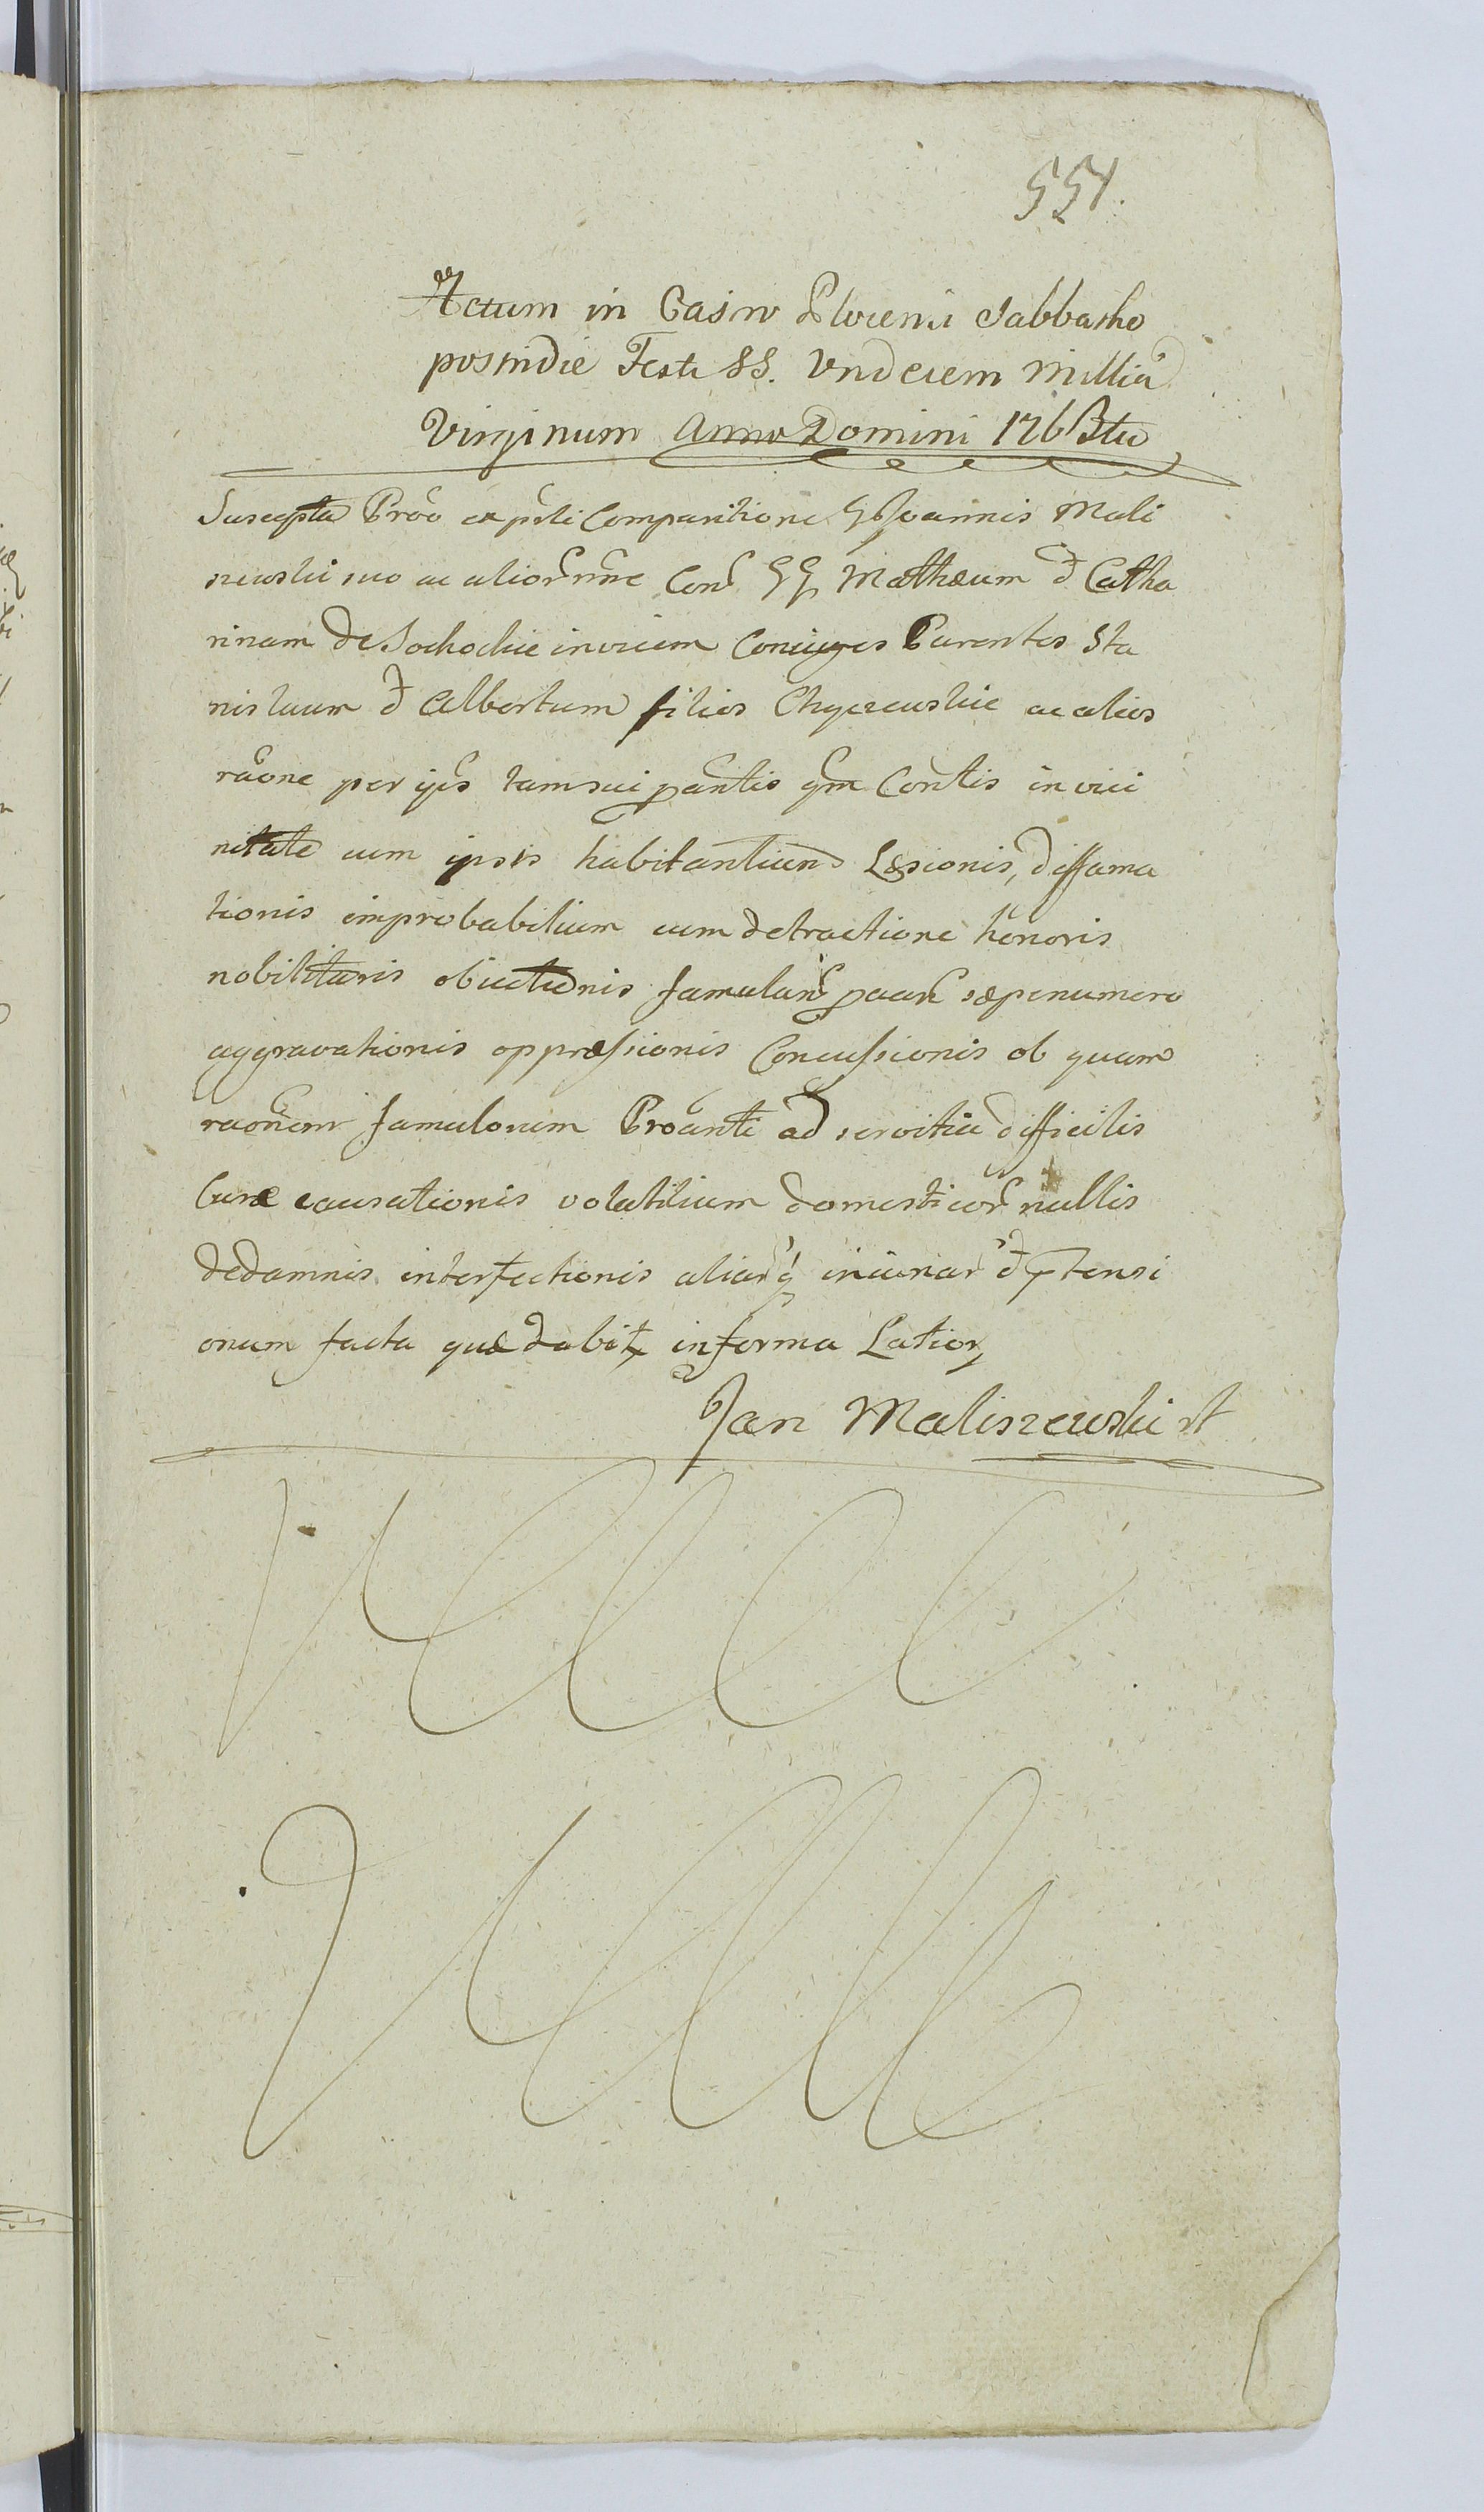 551.
Actum in Castro Plocensi Sabbatho
postridie Festi SS. Undecem Milliũ
Virginum Anno Domini 1763tio
Suscepta Prõõ ex pſti Comparitione G Joannis Mali
szewski suo ac alior nñe Con͂ GG Mathæum & Catha
rinam de Sochockie invicem Coniuges Parentes Sta
nislaum & Albertum filios Chyczewskie ac alios
raõne per ip͂s tam sui pantis qm Contis in vici
nitate cum ipsis habitantium Læsionis, diffama
tionis improbabilium cum detractione honoris
nobilitaris obiectionis famulan͂ sæpenumero
aggravationis oppræssionis Concussionis ob quam
raõnem famulorum Proanti ad servitia difficilis
Curæ causationis volatilium domesticor nullis
de damnis interfectionis aliar q iniuriar & ptensi
onum facta quæ dabit in forma Latior
Jan Maliszewski